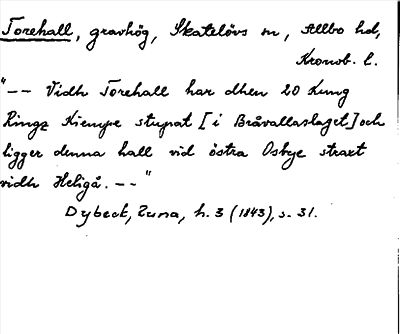 Torehall, gravhög, Skatelövs sn, Allbo hd,
Kronob. l.
"-- Vidh Torehall har dhen 20 Kung
Ringz Kiempe stupat [i Bråvallaslaget] och
ligger denna hall vid östra Osbye straxt
vidh Heligå. --"
Dybeck, Runa, h. 3 (1843), s. 31.